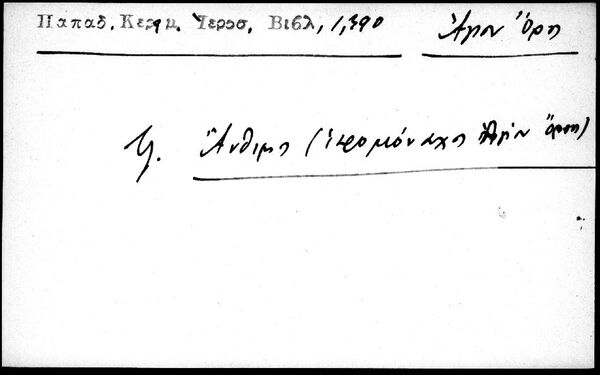 Παπαδ. Κεραμ. Ἱεροσ. Βιβλ, 1,390 Ἅγιον Ὄρος
Ἄνθιμος (ἱερομόναχος Ἁγίου Ὄρους)